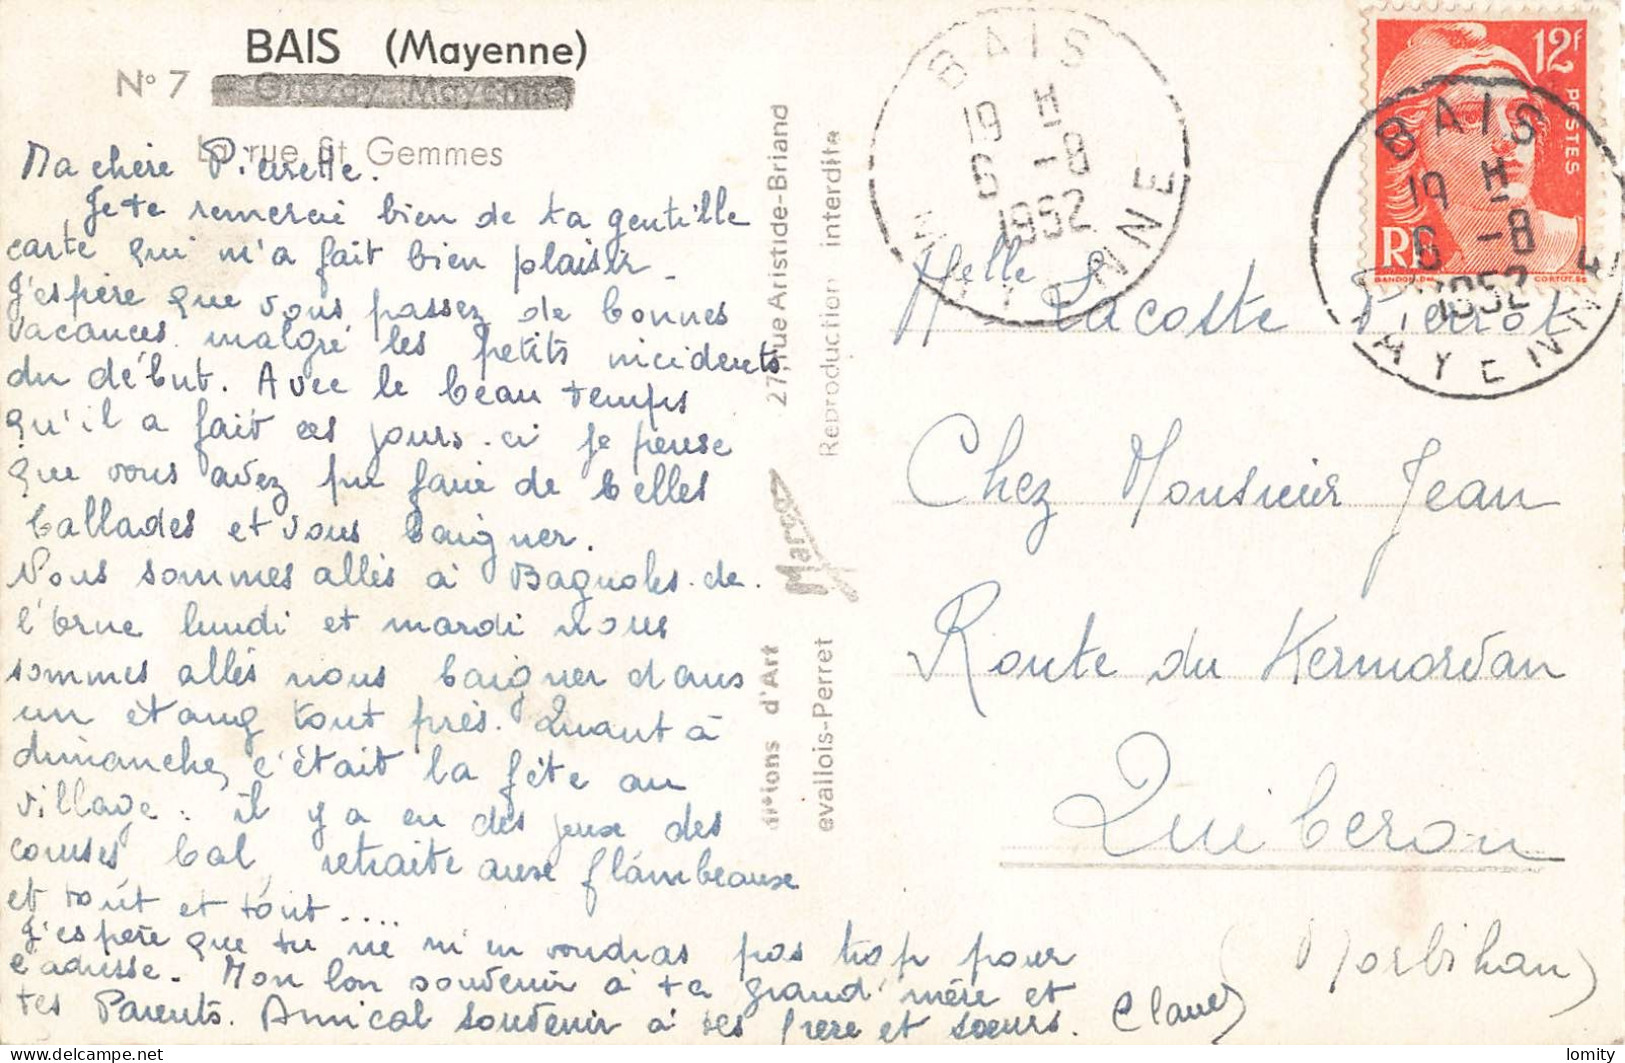 BAIS (Mayenne)
N° 7
La rue St Gemmes
Ma chère Pierrette.
Je te remercie bien de ta gentille
carte qui m'a fait bien plaisir_
J'espère que vous passez de bonnes
vacances malgré les petits incidents
du début. Avec le beau temps
qu'il a fait ces jours-ci je pense
que vous avez pu faire de belles
ballades et vous baigner.
Nous sommes allés à Bagnoles-de-
l'Orne lundi et mardi nous
sommes allés nous baigner dans
un étang tout près. Quant à
dimanche, c'était la fête au
village : il y a eu des jeux des
courses, bal, retraite aux flâmbeaux
et tout et tout.....
J'espère que tu ne m'en voudras pas trop pour
l'adresse. Mon bon souvenir à ta grand'mère et
tes Parents. Amical souvenir à tes frère et sœurs.
27, rue Aristide-Briand
Reproduction interdite
Marco
ditions d'Art
evallois-Perret
BAIS
19 H
6 -8
1952
MAYENNE
12F
POSTES
RF
GANDON
CORTOT
BAIS
19 H
6 -8
1952
MAYENNE
Melle Lacoste
Chez Monsieur Jean
Route du Kermorvan
Quiberon
(Morbihan)
lomity